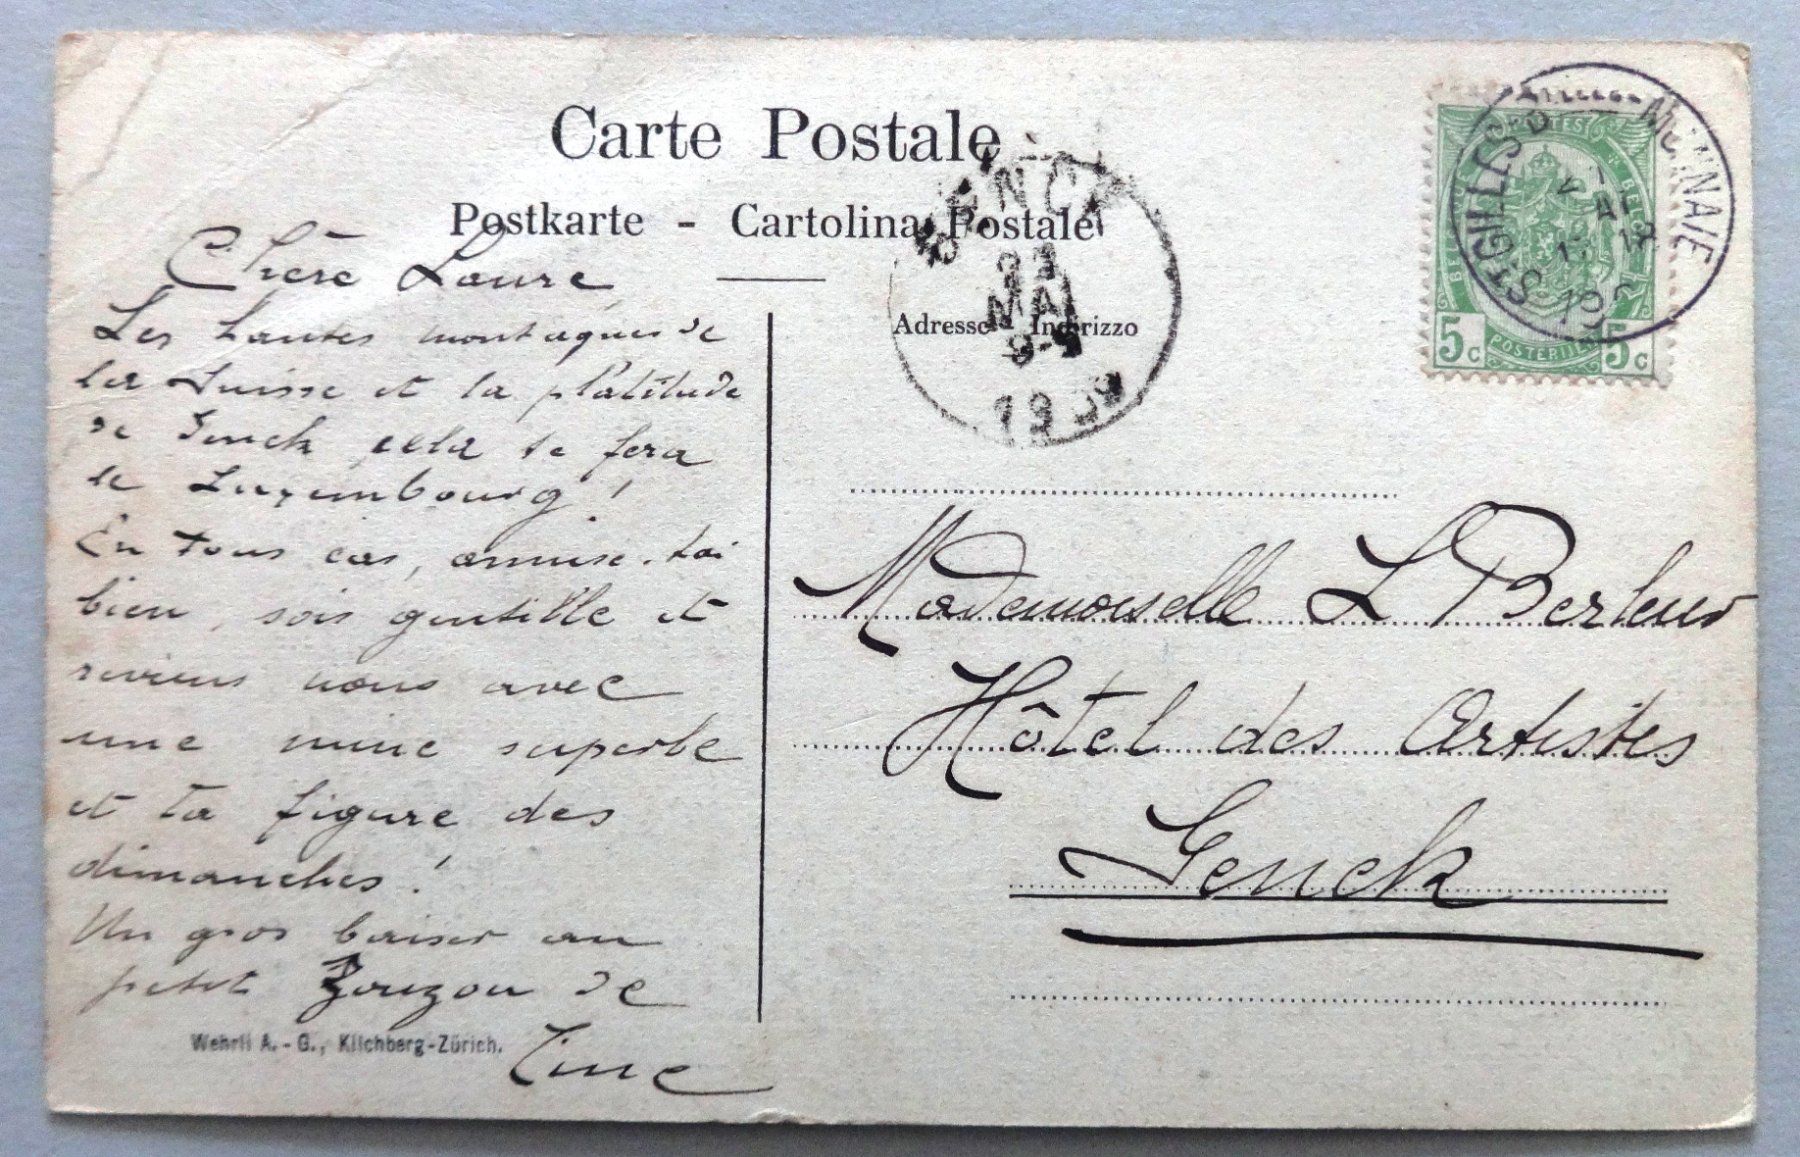 Carte Postale
Postkarte - Cartolina Postale
Adresse Indirizzo
GENCK
MAI
8-9
1909
ST GILLES
MONNAIE
POSTES
BELGIE
BELGIQUE
5c POSTERIJEN 5c
Chère Laure
Les hautes montagnes de
la Suisse et la platitude
de Genck cela te fera
le Luxembourg !
En tous cas, amuse-toi
bien, sois gentille et
reviens nous avec
une mine superbe
et ta figure des
dimanches !
Un gros baiser au
petit Zouzou de
Tine
Wehrli A.-G., Kilchberg-Zürich.
Mademoiselle L Berleur
Hôtel des Artistes
Genck